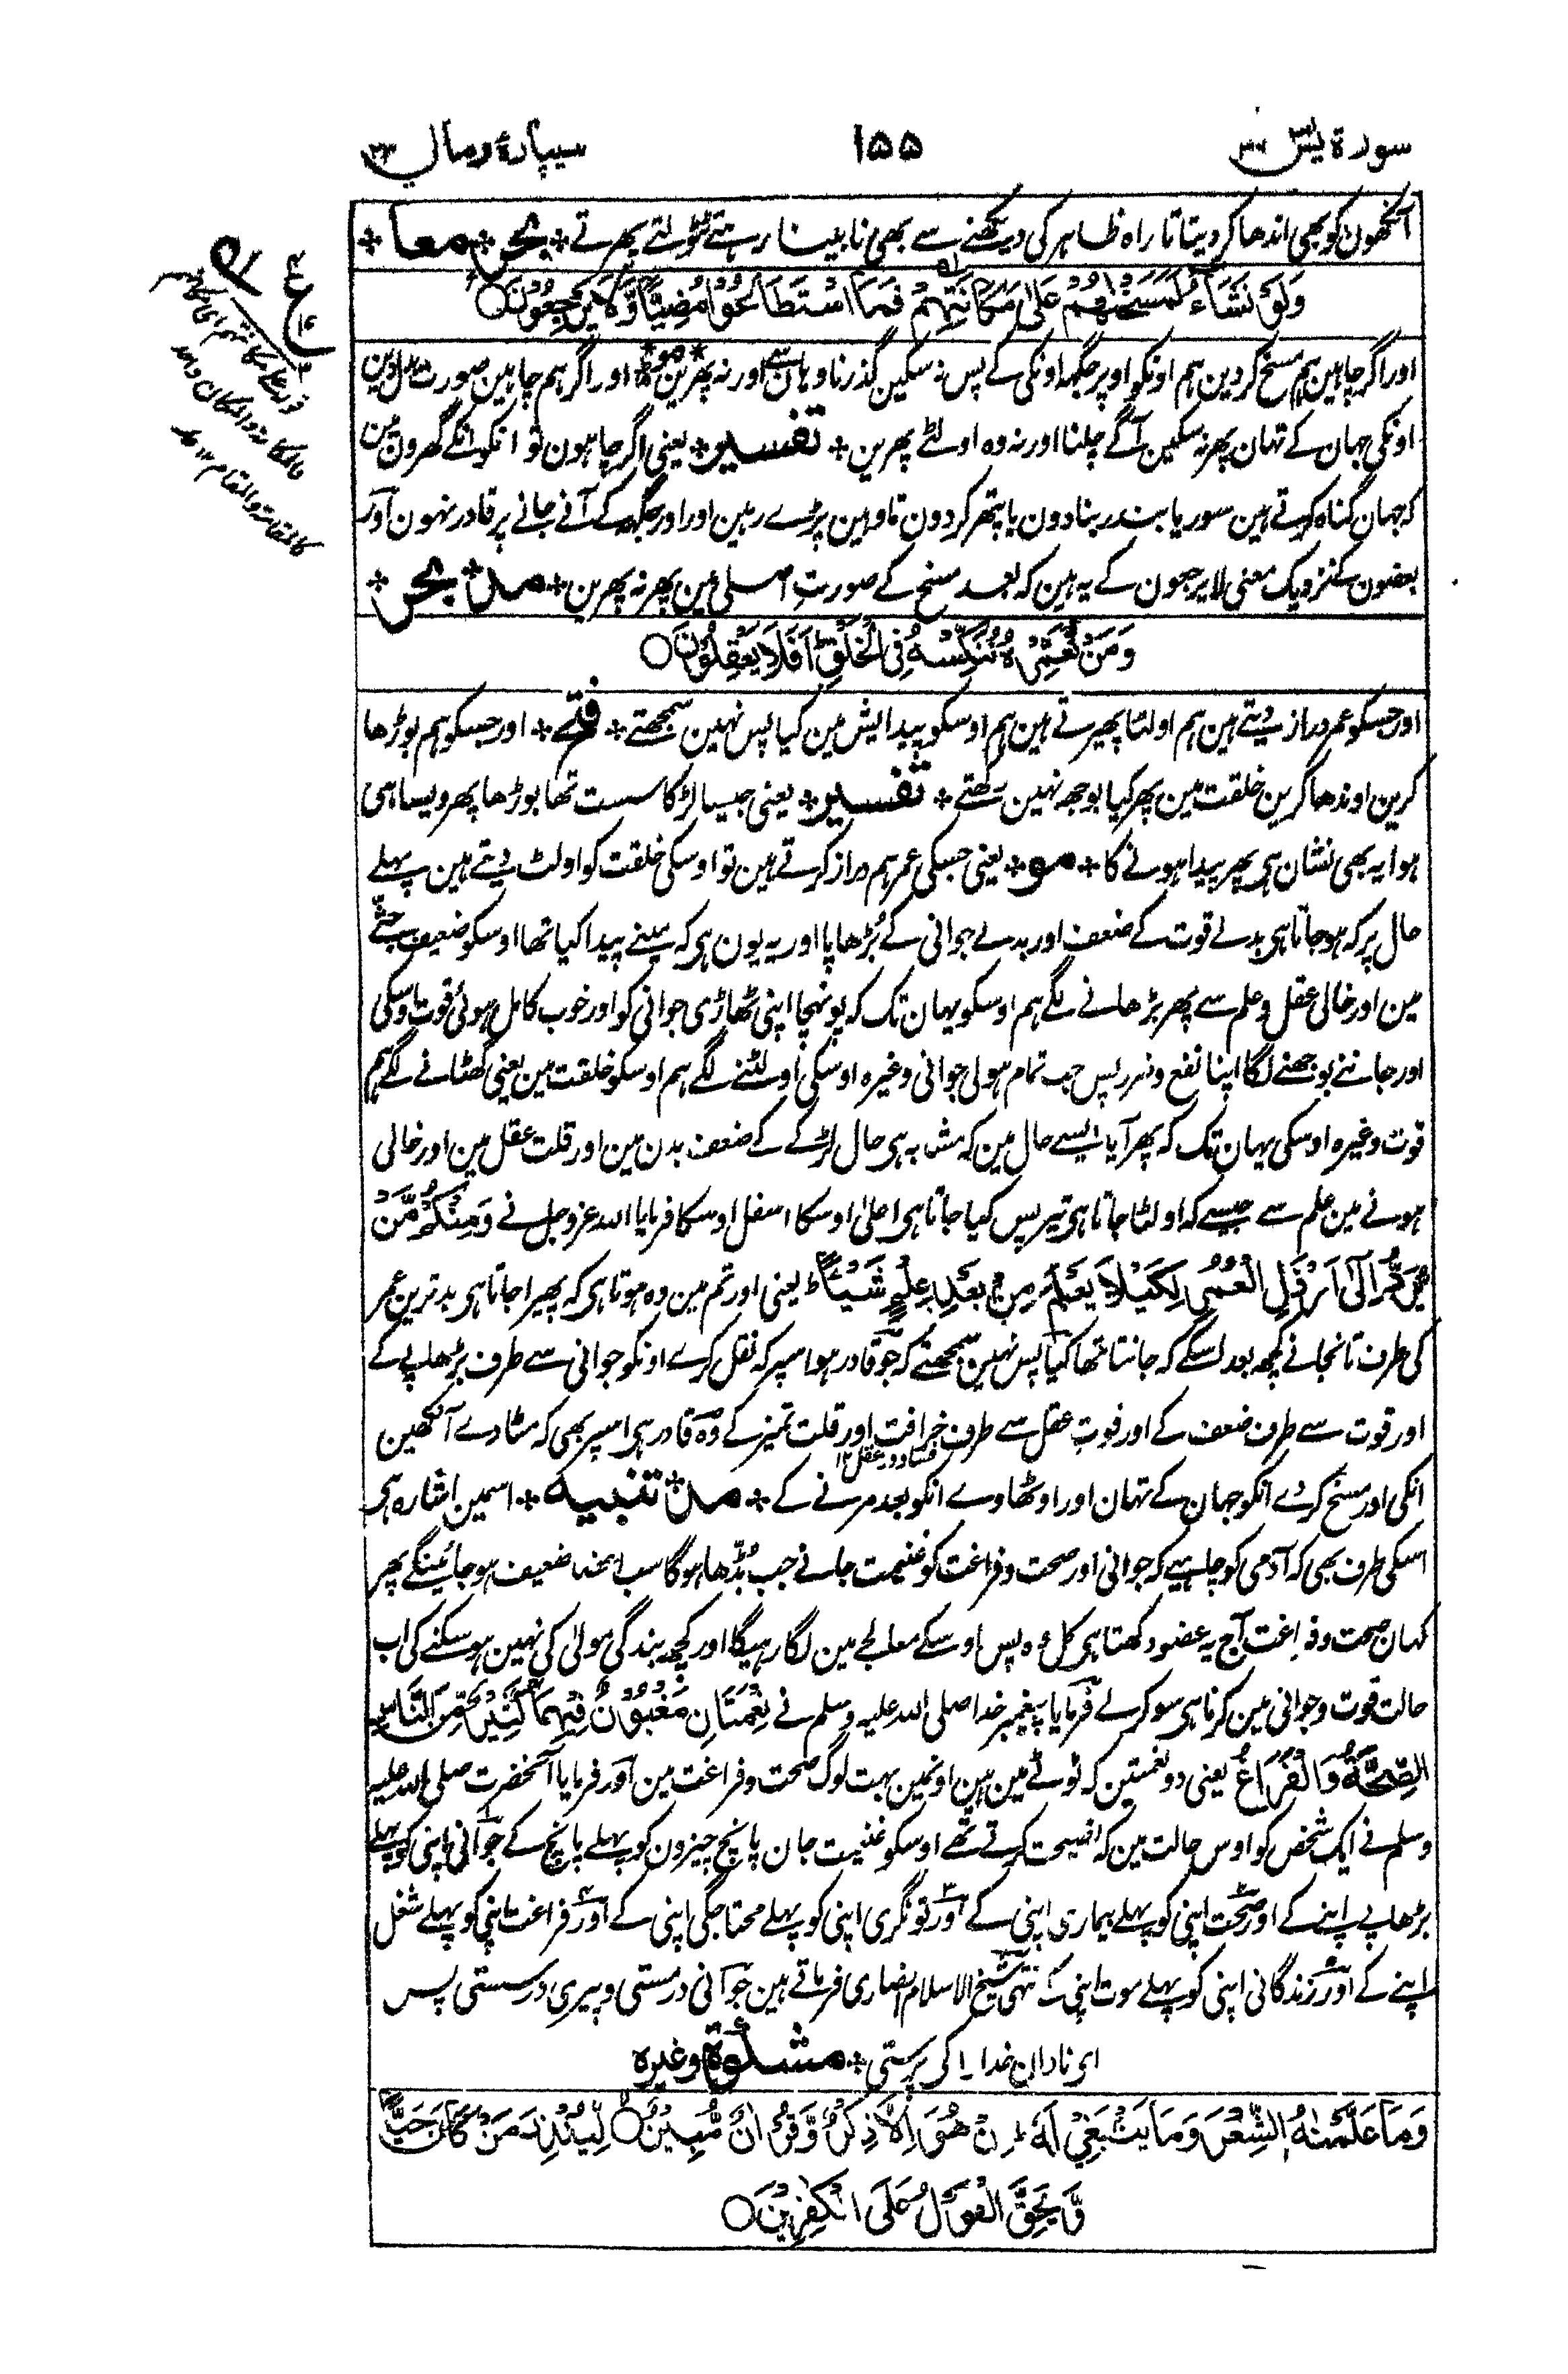 سورة یٰسٓ ۳۶
۱۵۵
سیپارہ ومالی ۲۳
آنکھون کو بھی اندھا کر دیتا تا راہ ظاہر کی دیکھنے سے بھی نابینا رہتے ٹٹولتے پھرتے * بحر * معا *
وَلَوْ نَشَآءُ لَمَسَخْنٰهُمْ عَلٰى مَكَانَتِهِمْ فَمَا اسْتَطَاعُوْا مُضِيًّا وَّلَا يَرْجِعُوْنَ ○
اور اگر چاہین ہم مسخ کر دین ہم اونکو اوپر جگہ اونکی کے پس نہ سکین گذرنا وہان سے اور نہ پھرین * مو * اور اگر ہم چاہین صورت بدل دین
اونکی جہان کے تہان پھر نہ سکین آگے چلنا اور نہ وہ اولٹے پھرین * تفسیر * یعنی اگر چاہون تو انکو انکے گھرون مین
کہ جہان گناہ کرتے ہین سور یا بندر بنا دون یا پتھر کر دون تا وہین پڑے رہین اور اور جگہ کے آنے جانے پر قادر نہون اور
بعضون کے نزدیک معنی لا یرجعون کے یہ ہین کہ بعد مسخ کے صورت اصلی مین پھر نہ پھرین * مد * بحر *
وَمَنْ نُّعَمِّرْهُ نُنَكِّسْهُ فِى الْخَلْقِ ؕ اَفَلَا يَعْقِلُوْنَ ○
اور جسکو عمر دراز دیتے ہین ہم اولٹا پھیرتے ہین ہم اوسکو پیدایش مین کیا پس نہین سمجھتے * فتح * اور جسکو ہم بوڑھا
کرین اوندھا کرین خلقت مین پھر کیا بوجھ نہین رکھتے * تفسیر * یعنی جیسا لڑکا سست تھا بوڑھا پھر ویسا ہی
ہوا یہ بھی نشان ہی پھر پیدا ہونے کا * مو * یعنی جسکی عمر ہم دراز کرتے ہین تو اوسکی خلقت کو اولٹ دیتے ہین پہلے
حال پر کہ ہو جاتا ہی بدلے قوت کے ضعف اور بدلے جوانی کے بُڑھاپا اور یہ یون ہی کہ ہمنے پیدا کیا تھا اوسکو ضعیف جثّے
مین اور خالی عقل و علم سے پھر بڑھانے لگے ہم اوسکو یہان تک کہ پونہچا اپنی ٹھاڑی جوانی کو اور خوب کامل ہوئی قوت اوسکی
اور جاننے بوجھنے لگا اپنا نفع و ضرر پس جب تمام ہولی جوانی وغیرہ اوسکی اولٹنے لگے ہم اوسکو خلقت مین یعنی گھٹانے لگے ہم
قوت وغیرہ اوسکی یہان تک کہ پھر آیا ایسے حال مین کہ مشابہ ہی حال لڑکے کے ضعف بدن مین اور قلت عقل مین اور خالی
ہونے مین علم سے جیسے کہ اولٹا جاتا ہی تیر پس کیا جاتا ہی اعلیٰ اوسکا اسفل اوسکا فرمایا اللہ عزوجل نے وَمِنْكُمْ مَّنْ
يُّرَدُّ اِلٰٓى اَرْذَلِ الْعُمُرِ لِكَيْلَا يَعْلَمَ مِنْۢ بَعْدِ عِلْمٍ شَيْـًٔا ؕ یعنی اور تم مین وہ ہوتا ہی کہ پھیرا جاتا ہی بدترین عمر
کی طرف تا نجانے کچھ بعد اسکے کہ جانتا تھا کیا پس نہین سمجھتے کہ جو قادر ہوا سپر کہ نقل کرے اونکو جوانی سے طرف بڑھاپے کے
اور قوت سے طرف ضعف کے اور فوت عقل سے طرف خرافت اور قلت تمیز کے وہ قادر ہی اسپر بھی کہ مٹا دے آنکھین
فساد عقل ۱۲
انکی اور مسخ کر دے انکو جہان کے تہان اور اوٹھاوے انکو بعد مرنے کے * مد * تنبیه * اسمین اشارہ ہی
اسکی طرف بھی کہ آدمی کو چاہیے کہ جوانی اور صحت و فراغت کو غنیمت جانے جب بُڈّھا ہوگا سب اعضا ضعیف ہو جائینگے پھر
کہان صحت و فراغت آج یہ عضو دکھتا ہی کل وہ پس اوسکے معالجے مین لگا رہیگا اور کچھ بندگی مولیٰ کی نہین ہو سکنے کی اب
حالت قوت و جوانی مین کرنا ہی سو کر لے فرمایا پیغمبر خدا صلی اللہ علیہ وسلم نے نِعْمَتَانِ مَغْبُوْنٌ فِيْهِمَا كَثِيْرٌ مِّنَ النَّاسِ
الصِّحَّةُ وَالْفَرَاغُ یعنی دو نعمتین کہ ٹوٹے مین ہین اونمین بہت لوگ صحت و فراغت مین اور فرمایا آنحضرت صلی اللہ علیہ
وسلم نے ایک شخص کو اوس حالت مین کہ نصیحت کرتے تھے اوسکو غنیمت جان پانچ چیزون کو پہلے پانچ کے جوانی اپنی کو پہلے
بڑھاپے اپنے کے اور صحت اپنی کو پہلے بیماری اپنی کے اور تونگری اپنی کو پہلے محتاجگی اپنی کے اور فراغت اپنی کو پہلے شغل
اپنے کے اور زندگانی اپنی کو پہلے موت اپنی کے انتہی شیخ الاسلام انصاری فرماتے ہین جوانی در مستی و پیری در سستی پس
ای نادان خدا را کی پرستی * مشکوٰة وغیرہ
وَمَا عَلَّمْنٰهُ الشِّعْرَ وَمَا يَنْۢبَغِىْ لَهٗ ؕ اِنْ هُوَ اِلَّا ذِكْرٌ وَّقُرْاٰنٌ مُّبِيْنٌ ○ لِّيُنْذِرَ مَنْ كَانَ حَيًّا
وَّيَحِقَّ الْقَوْلُ عَلَى الْكٰفِرِيْنَ ○